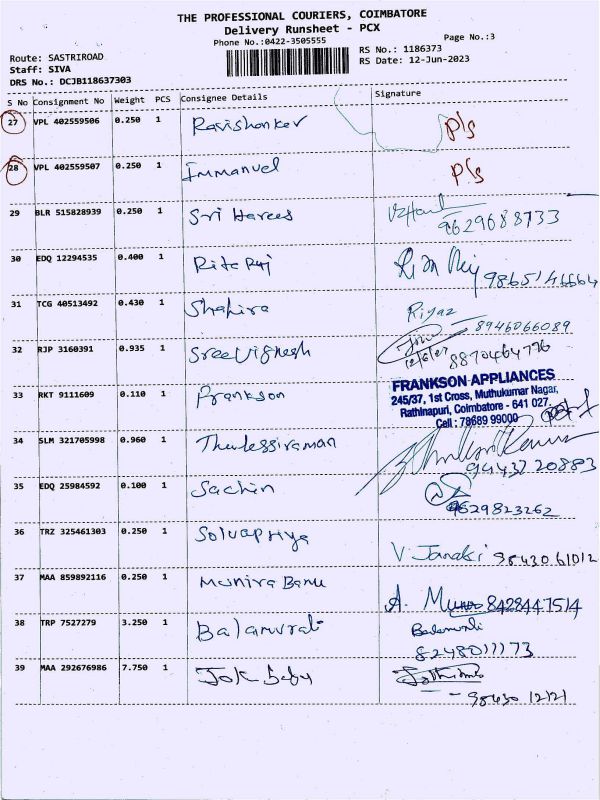 THE PROFESSIONAL COURIERS, COIMBATORE
Delivery Runsheet - PCX
Phone No.:0422-3505555
Page No.:3
Route: SASTRIROAD
Staff: SIVA
DRS No.: DCJB118637303
RS No.: 1186373
RS Date: 12-Jun-2023
S No Consignment No Weight PCS Consignee Details Signature
27 VPL 402559506 0.250 1 Ravishanker P/s
28 VPL 402559507 0.250 1 Immanuel P/s
29 BLR 515828939 0.250 1 Sri Harees 9629688733
30 EDQ 12294535 0.400 1 Rite Raj 9865146664
31 TCG 40513492 0.430 1 Shahira Riyaz 8946066089
32 RJP 3160391 0.935 1 Sree Vignesh 8870464776
33 RKT 9111609 0.110 1 Frankson
FRANKSON APPLIANCES
245/37, 1st Cross, Muthukumar Nagar,
Rathinapuri, Coimbatore - 641 027.
Cell : 78689 99000
34 SLM 321705998 0.960 1 Thulessiraman 9443720883
35 EDQ 25984592 0.100 1 Sachin 9629823262
36 TRZ 325461303 0.250 1 Selvapriya V. Janaki 98430 61012
37 MAA 859892116 0.250 1 Munira Banu A. 8428447514
38 TRP 7527279 3.250 1 Balamurali Balamurali
8248011173
39 MAA 292676986 7.750 1 98430 12121